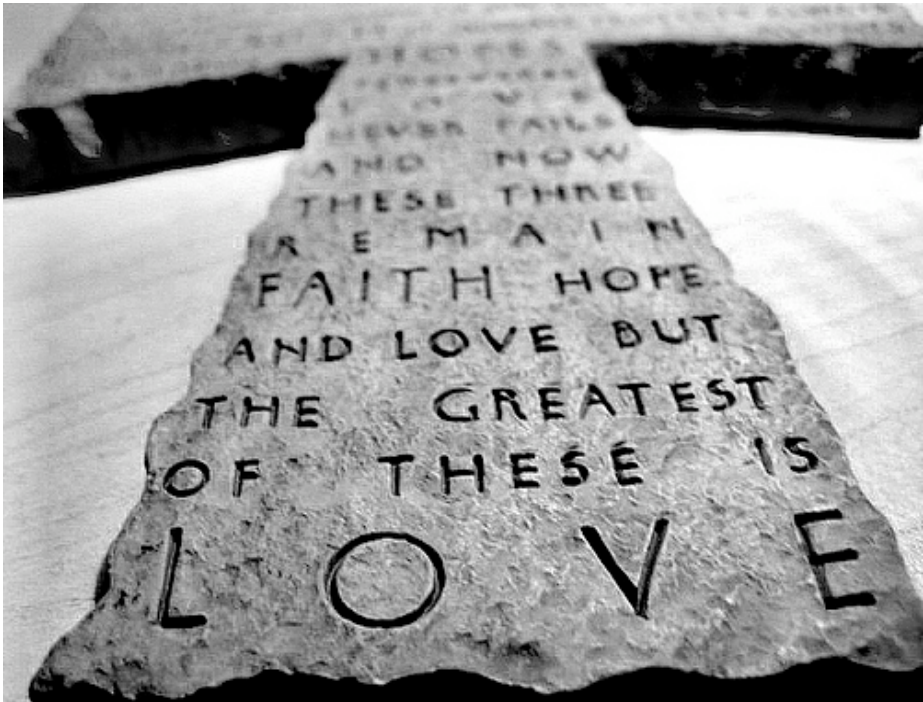 HOPES
LOVE
NEVER FAILS
AND NOW
THESE THREE
REMAIN
FAITH HOPE
AND LOVE BUT
THE GREATEST
OF THESE IS
LOVE